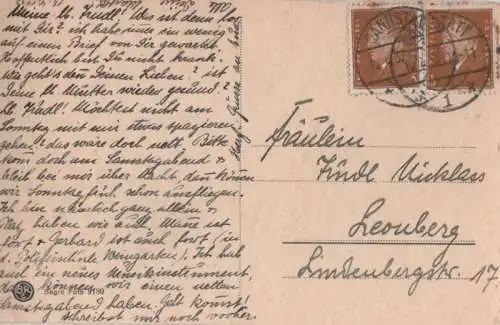 Meine lb. Friedl! Was ist denn los
mit Dir? ich habe nun ein wenig
auf einen Brief von Dir gewartet.
Hoffentlich bist Du nicht krank.
Wie geht's den Deinen Lieben? ist
Deine lb. Mutter wieder gesund?
lb. Friedl! Möchtest nicht am
Sonntag mit mir etwas spazieren
gehen? das wäre doch nett. Bitte
komm doch am Samstagabend &
bleib bei mir über Nacht, dann können
wir Sonntag früh schon ausfliegen.
Ich bin nämlich ganz allein &
Platz haben wir auch.
fort & Gerhard ist auch fort (in
d. Polizeischule Weingarten). Ich hab
auch ein neues Musikinstrument,
da können wir einen netten
Samstagabend haben. Gelt kommst!
schreibst mir noch vorher.
Fräulein
Friedl Nicklass
Leonberg
Lindenbergstr. 17.